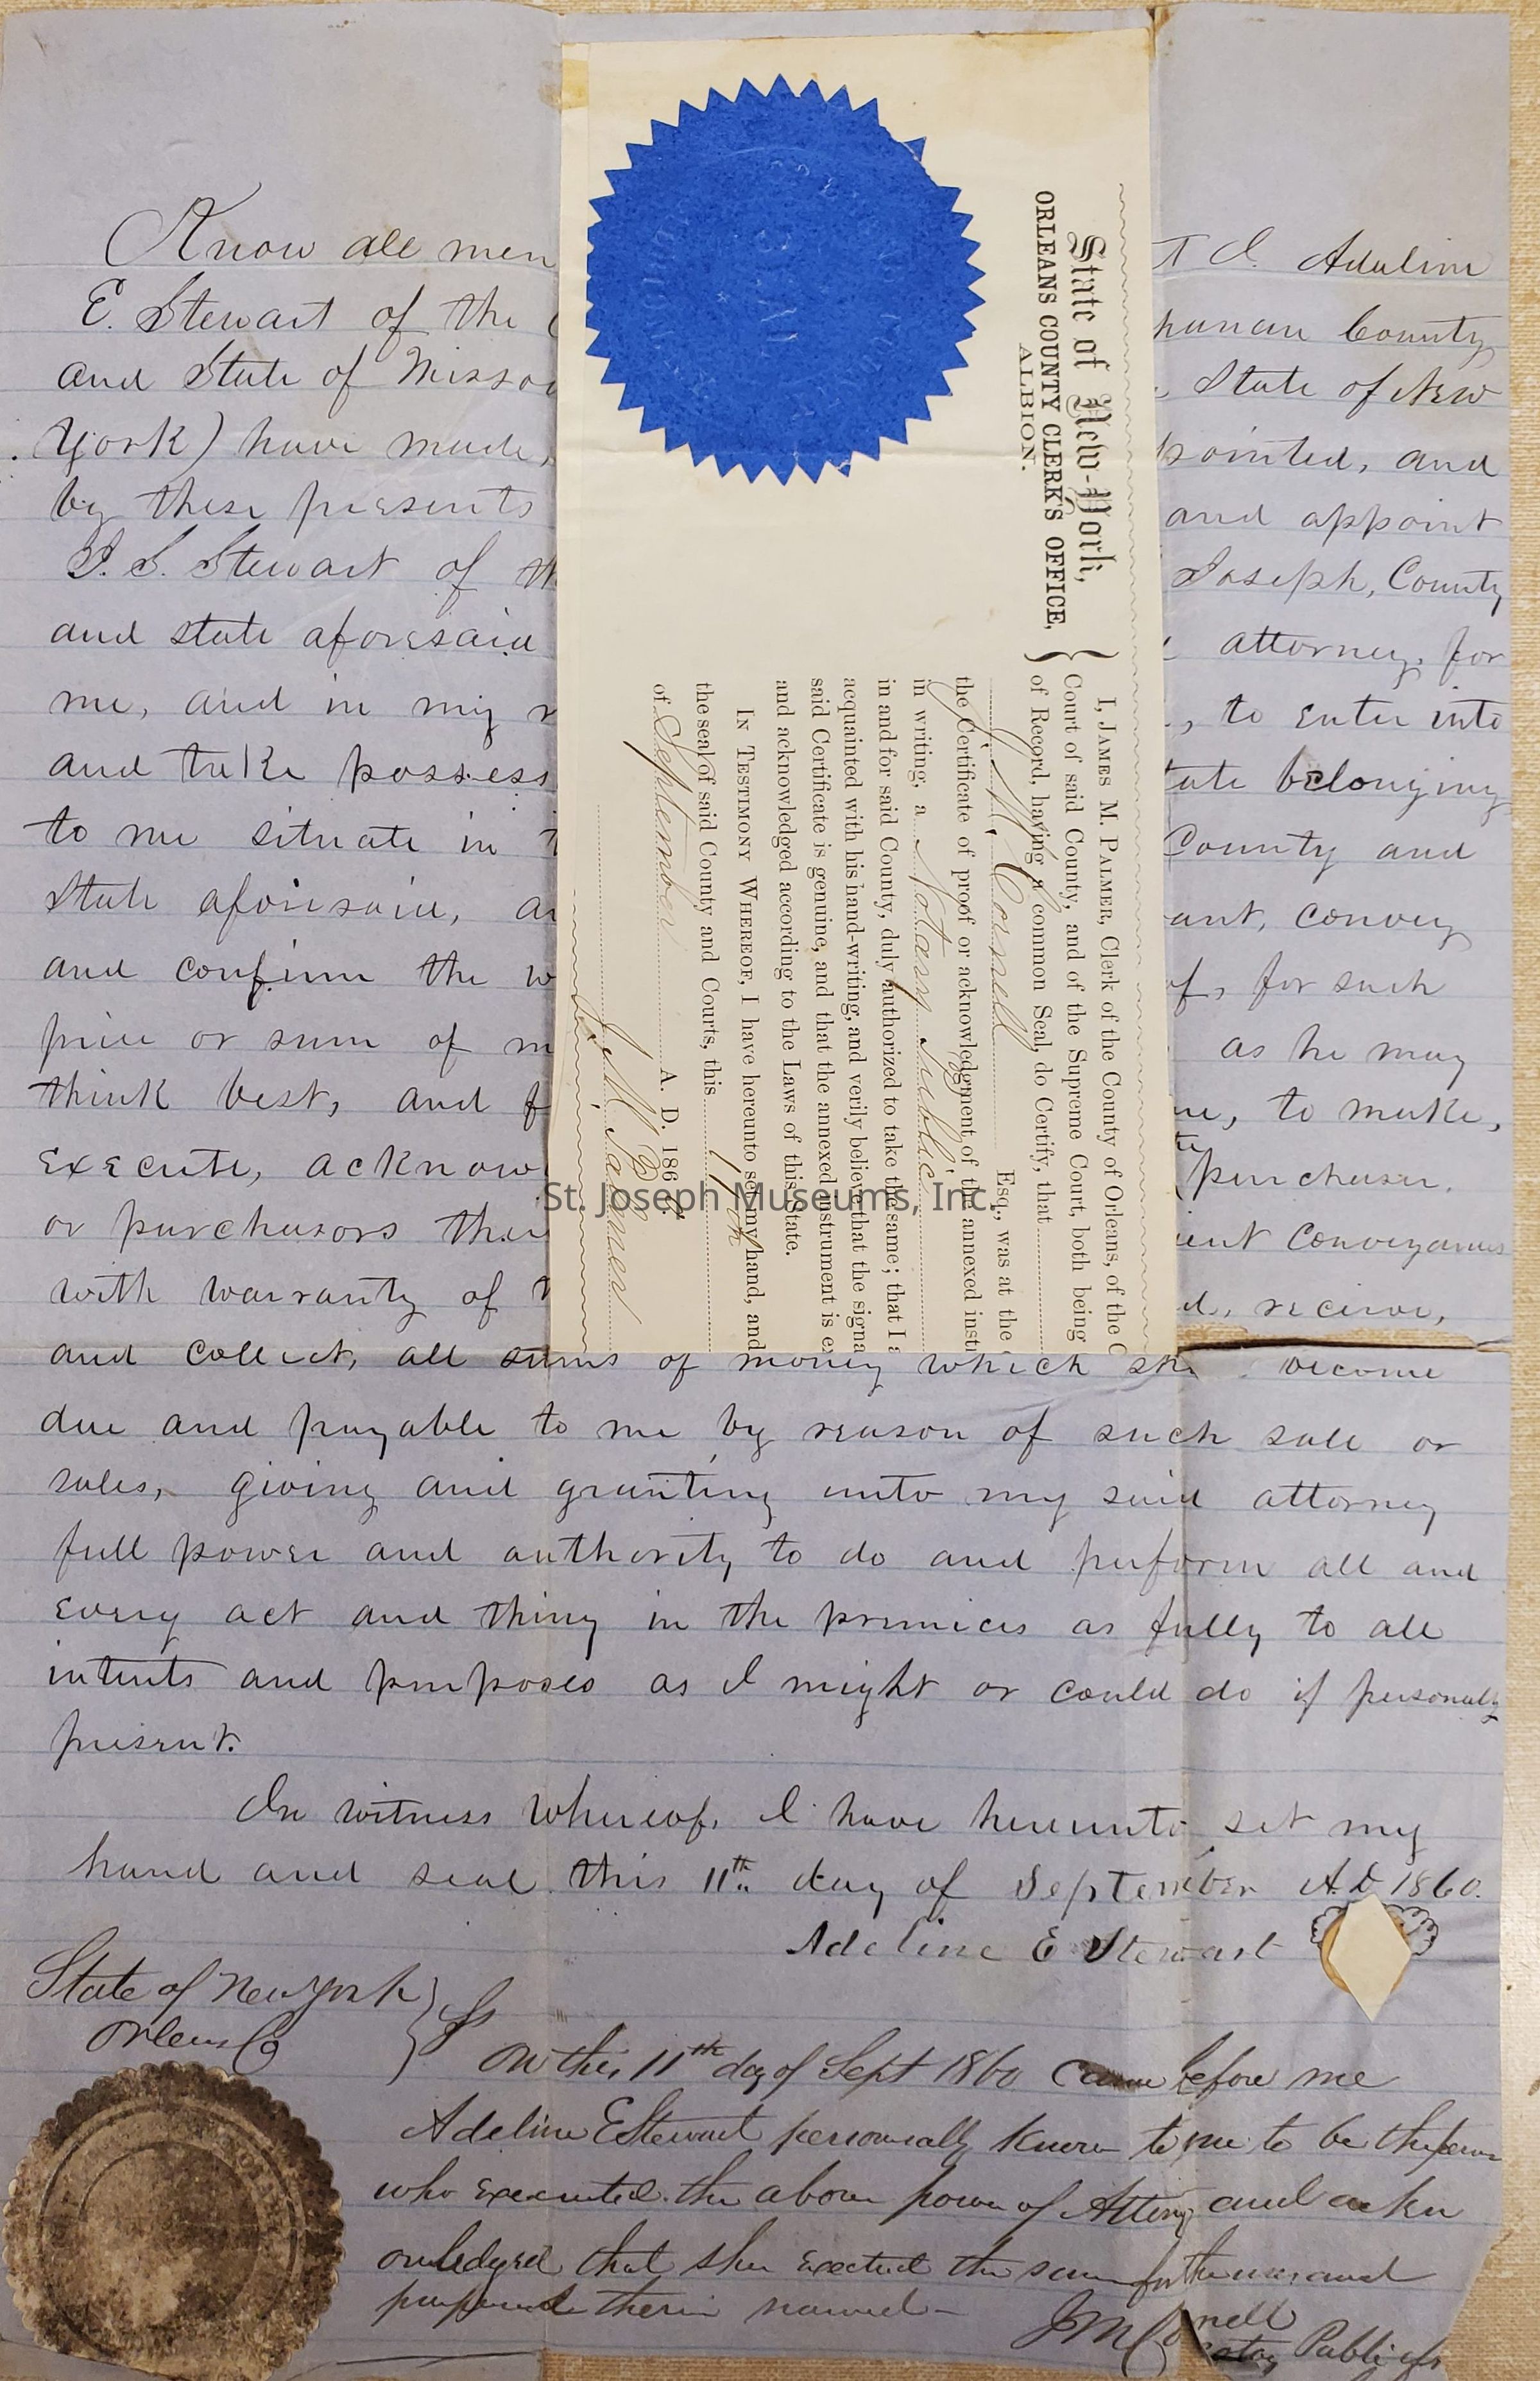 Know all men
T I. Adaline
E. Stewart of the
County,
and State of
State of New
York) have made,
pointed, and
by these presents
and appoint
Stewart of
Joseph, County
and state aforesaid
attorney, for
me, and in my
, to enter into
and take possess
belonging
to me situate in
County and
State aforesaid,
convey
and confirm the
for such
price or sum of
as he may
think best, and
to make,
execute, acknow
purchaser.
or purchasors
Conveyances
with warranty of
receive,
and collect, all sums of money which become
due and payable to me by reason of such sale or
sales, giving and granting unto my said attorney
full power and authority to do and perform all and
every act and thing in the premices as fully to all
intents and purposes as I might or could do if personally
present.
In witness whereof, I have hereunto set my
hand and seal this 11th day of September A.D. 1860.
Adeline E Stewart
State of New York } Ss
Orleans Co
On this 11th day of Sept 1860 Came before me
Adeline E Stewart personally known to me to be the person
who executed the above power of Attory and ackn
owledged that she the same for the uses and
therin named-
J M Cornell
Notary Public
State of New-York,
ORLEANS COUNTY CLERK'S OFFICE,
ALBION.
I, JAMES M. PALMER, Clerk of the County of Orleans, of the C
Court of said County, and of the Supreme Court, both being
of Record, having a common Seal, do Certify, that
J. M. Cornell Esq., was at the
the Certificate of proof or acknowledgment of the annexed inst
in writing, a Notary Public
in and for said County, duly authorized to take the same; that I a
acquainted with his hand-writing, and verily believe that the signa
said Certificate is genuine, and that the annexed instrument is e
and acknowledged according to the Laws of this State.
IN TESTIMONY WHEREOF, I have hereunto set my hand, and
the seal of said County and Courts, this 11th
of September A. D. 186
J. M. Palmer
St. Joseph Museums, Inc.